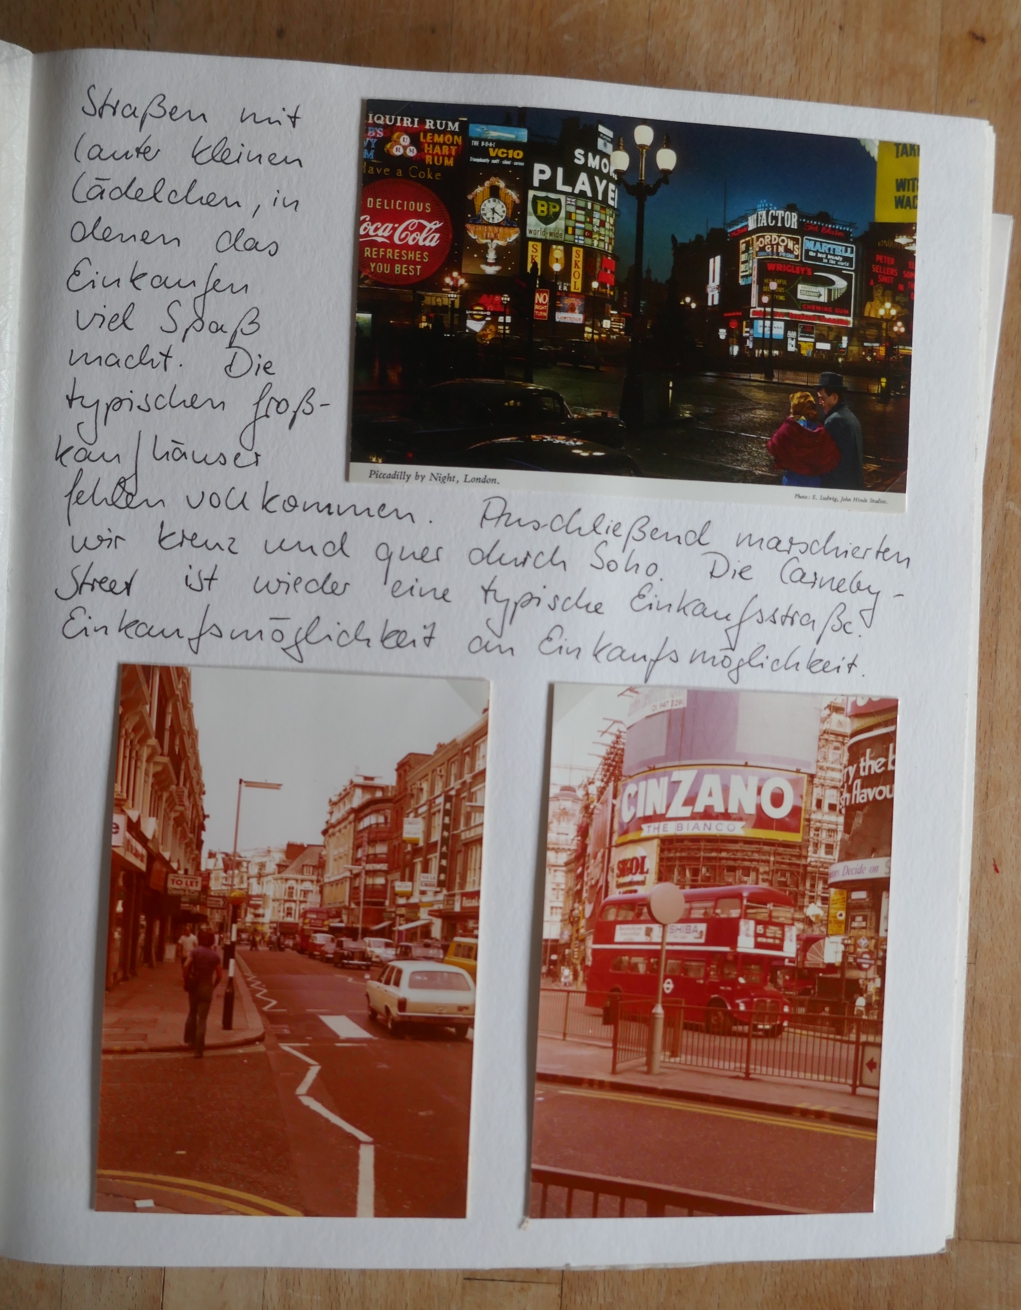 Straßen mit
lauter kleinen
Lädelchen, in
denen das
Einkaufen
viel Spaß
macht. Die
typischen Groß-
kaufhäuser
fehlen vollkommen. Anschließend marschierten
wir kreuz und quer durch Soho. Die Carneby-
Street ist wieder eine typische Einkaufsstraße.
Einkaufsmöglichkeit an Einkaufsmöglichkeit.
IQUIRI RUM
LEMON
HART
RUM
Have a Coke
DELICIOUS
Coca-Cola
REFRESHES
YOU BEST
VC10
SMO
PLAYE
BP
world-wide
SKOL
NO
RIGHT
TURN
FACTOR
GORDON'S
GIN
MARTELL
WRIGLEY'S
PETER
SELLERS
TAK
WIT
WAD
Piccadilly by Night, London.
Photo: E. Ludwig, John Hinde Studios.
TO LET
CINZANO
THE BIANCO
SKOL
SHIBA
15
ry the b
sh flavou
Decide on